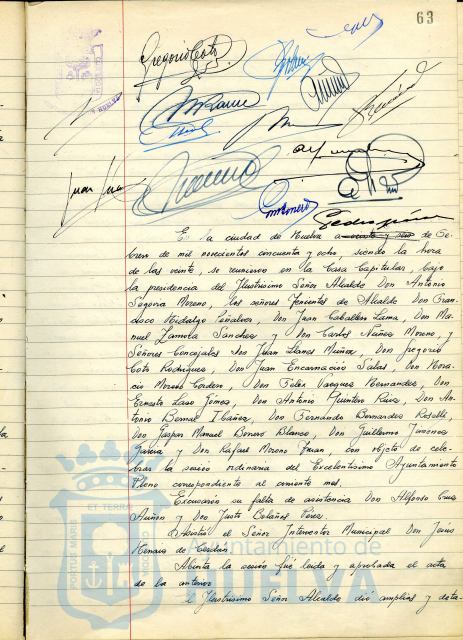 63
Gregorio Coto
Juan
En la ciudad de Huelva a veinte y seis de Fe-
brero de mil novecientos cincuenta y ocho, siendo la hora
de las veinte, se reunieron en la Casa Capitular, bajo
la presidencia del Ilustrísimo Señor Alcalde Don Antonio
Segovia Moreno, los señores Tenientes de Alcalde Don Fran-
cisco Hidalgo Peñalver, Don Juan Caballero Lama, Don Ma-
nuel Zamora Sanchez y Don Carlos Nuñez Moreno, y
Señores Concejales Don Juan Llanes Muñoz, Don Gregorio
Coto Rodriguez, Don Juan Encarnacio Salas, Don Hora-
cio Moreno Cordero, Don Felix Vazquez Hernandez, Don
Ernesto Laso Gomez, Don Antonio Quintero Riva, Don An-
tonio Bernal Ibañez, Don Fernando Bernardez Roselle,
Don Gaspar Manuel Borrero Blanco, Don Guillermo Jimenez
Garcia y Don Rafael Moreno Juan, con objeto de cele-
brar la sesión ordinaria del Excelentísimo Ayuntamiento
Pleno correspondiente al corriente mes.
Excusaron su falta de asistencia Don Alfonso Cruz
Auñon y Don Justo Cabañas Pérez.
Asistió el Señor Interventor Municipal Don Jesús
Henain de Cerdan.
Abierta la sesión fué leida y aprobada el acta
de la anterior.
Ilustrísimo Señor Alcalde dió amplias y deta-
PORTUS MARIS
ET TERRAE
Ayuntamiento de
HUELVA